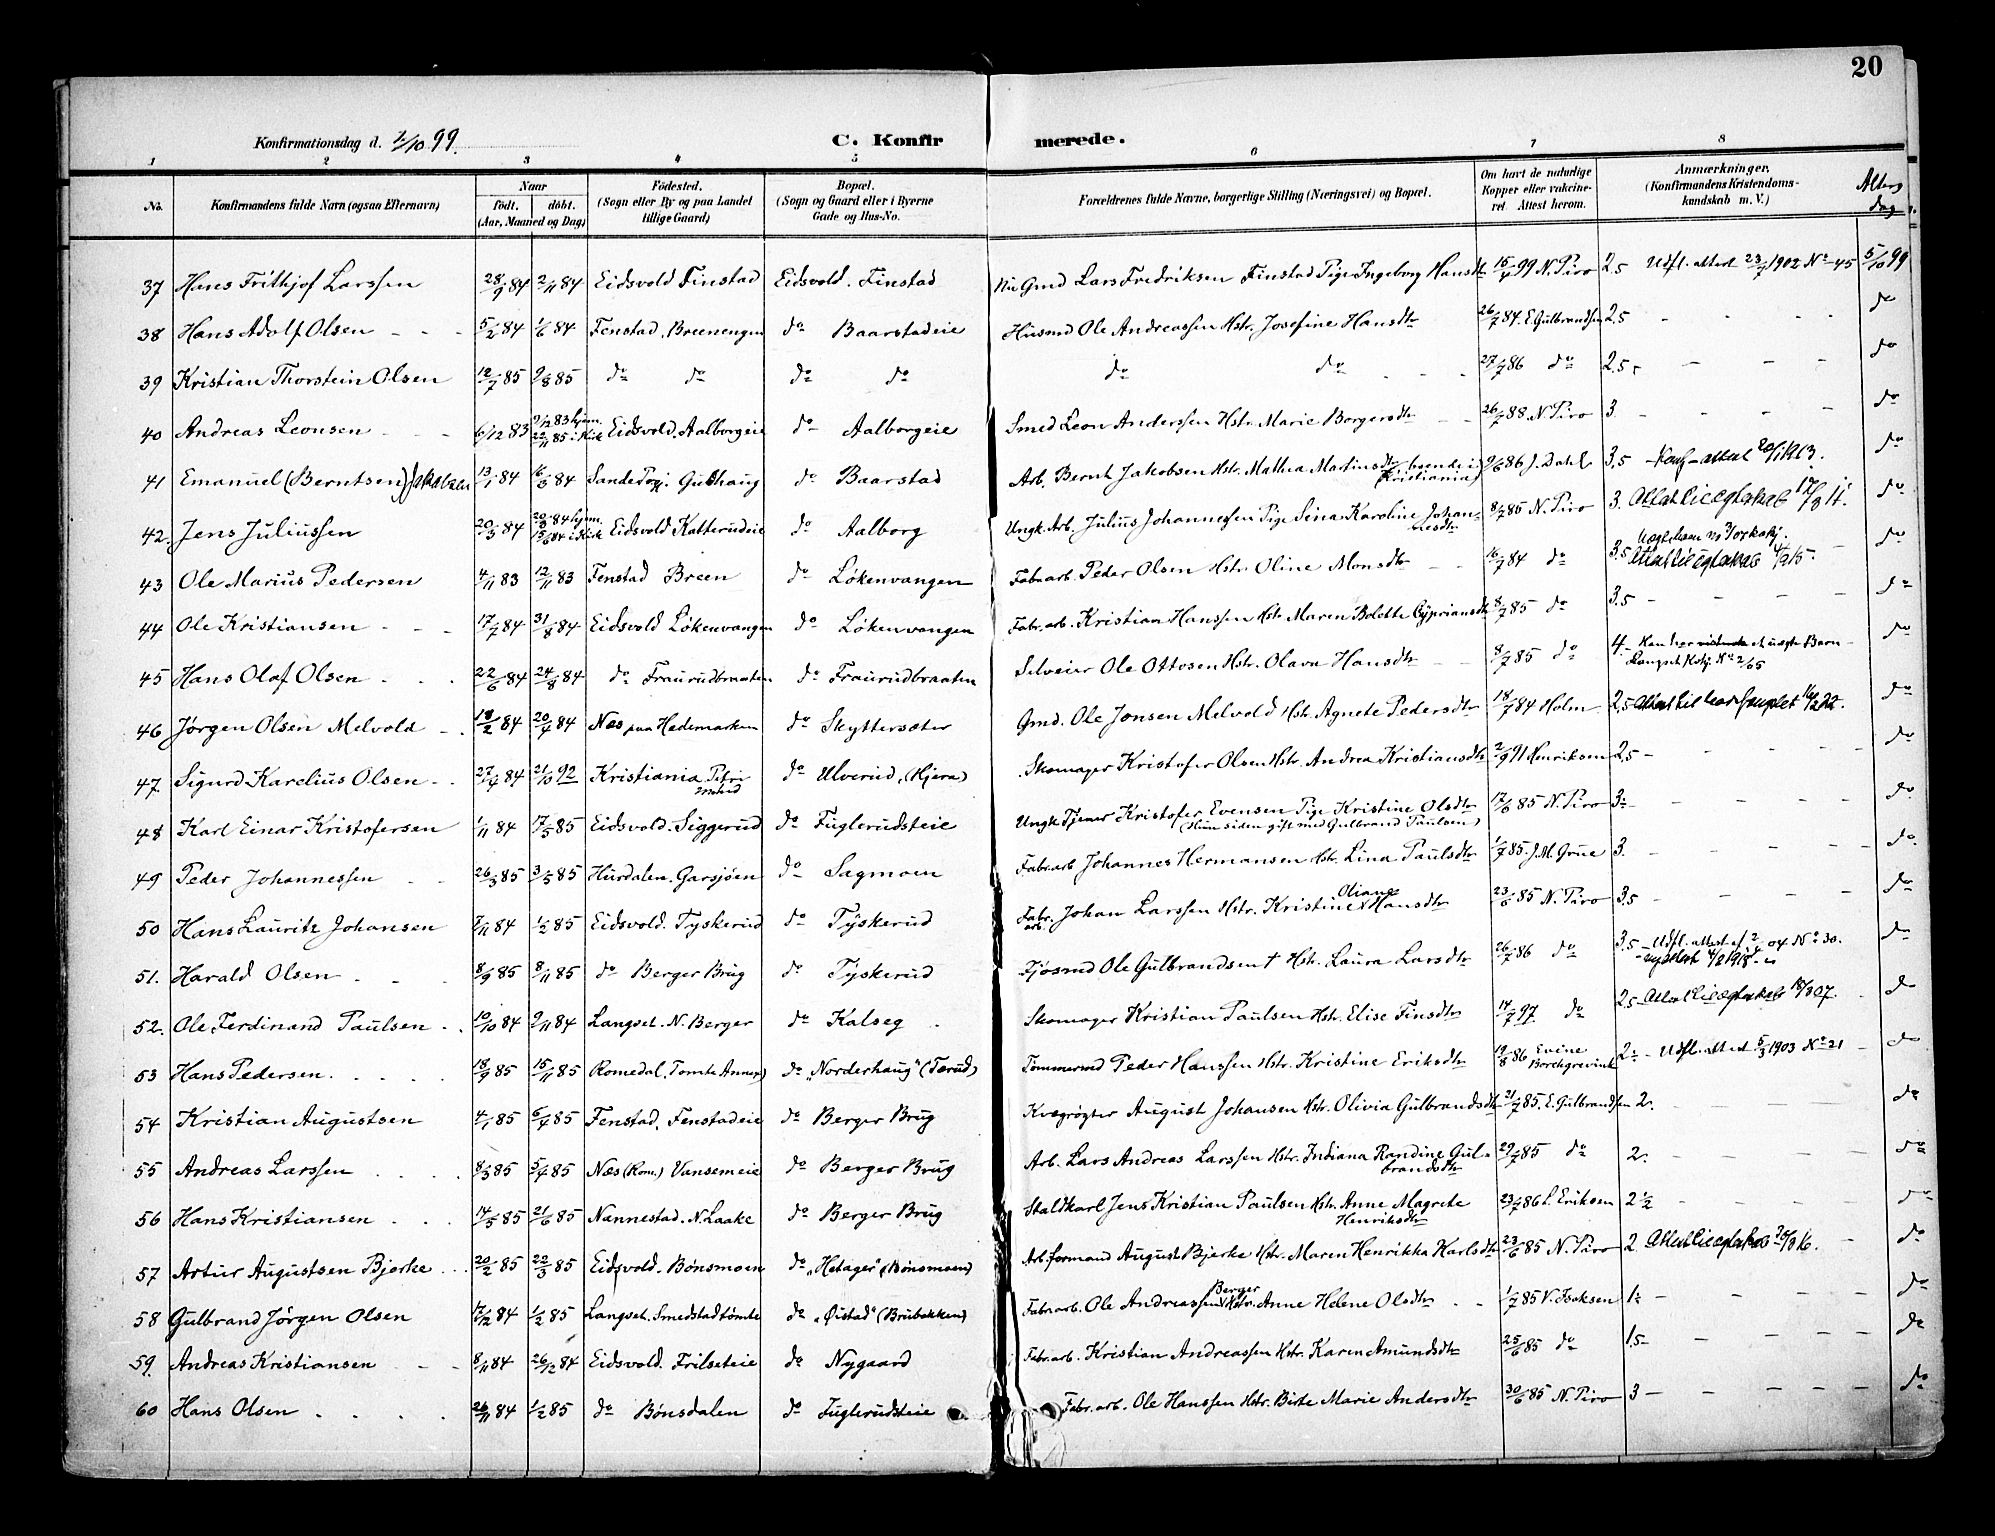 20
Konfirmationsdag d. 1/10 99. C. Konfirmerede.
1 2 3 4 5 6 7 8
No. Konfirmandens fulde Navn (ogsaa Efternavn) Naar født. døbt. (Aar, Maaned og Dag) Fødested. (Sogn eller By og paa Landet tillige Gaard) Bopæl. (Sogn og Gaard eller i Byerne Gade og Hus-No. Forældrenes fulde Navne, borgerlige Stilling (Næringsvei) og Bopæl. Om havt de naturlige Kopper eller vakcineret. Attest herom. Anmærkninger, (Konfirmandens Kristendomskundskab m. V.) Alters dag
37 Hans Frithjof Larssen 28/9 84 2/11 84 Eidsvold Finstad Eidsvold. Finstad Gmd Lars Fredriksen Finstad Pige Ingeborg Hansdtr 15/4 99 N. Piro 2.5 Udfl. attest 23/7 1902 No 45 5/10 99
38 Hans Adolf Olsen 5/2 84 1/6 84 Fenstad. Breenengen do Baarstadeie Husmd Ole Andreassen Hstr. Josefine Hansdtr 26/7 84. E. Gulbrandsen 2.5 do
39 Kristian Thorstein Olsen 12/7 85 9/8 85 do do do do do do 27/7 86 do 2.5 do
40 Andreas Leonsen 6/12 83 9/12 83 hjem. 22/11 85 i Kirk Eidsvold. Aalborgeie do Aalborgeie Smed Leon Anderssen Hstr. Marie Borgersdtr 26/7 88. N. Piro 3. do
41 Emanuel (Berntsen) Jakobsen 13/1 84 16/3 84 Sande Gulhaug do Baarstad Arb. Bernt Jakobsen Hstr. Mathea Martinsdtr boende i Kristiania) 9/6 86 J. Dahl 3.5 Konf-attest 20/1 1913. do
42. Jens Juliussen 20/3 84 20/3 84 hjem. 15/6 84 i Kirk Eidsvold Katterudeie do Aalborg Ungk. Arb. Julius Johannessen Pige Sina Karoline Johannesdtr 8/7 85 N. Piro 3. Attest til ægteskab 17/8 11. do
43 Ole Marius Pedersen 4/11 83 12/11 83 Fenstad Breen do Løkenvangen Fabr.arb. Peder Olsen Hstr Oline Monsdtr 16/7 84 do 3.5 Attest til ægteskab 4/2 15. do
44 Ole Kristiansen 17/7 84 31/8 84 Eidsvold Løkenvangen do Løkenvangen Fabr.arb. Kristian Hanssen Hstr Maren Bolette Cypriansdtr 8/7 85 do 3.5 do
45 Hans Olaf Olsen 22/6 84 24/8 84 do Fraurudbraaten do Fraurudbraaten Selveier Ole Ottosen Hstr. Olava Hansdtr 8/7 85 do 4. Han har et uægte Barn Langset No 2/65 do
46 Jørgen Olsen Melvold 18/2 84 20/4 84 Næs paa Hedemarken do Skyttersæter Gmd. Ole Jonsen Melvold Hstr. Agnete Pedersdtr 18/7 84 Holm 2.5 do
47. Sigurd Karelius Olsen 27/4 84 21/10 92 Kristiania Petri do Ulverud, (Hjera) Skomager Kristofer Olsen Hstr. Andrea Kristiansdtr 2/9 91 Henriksen 2.5 do
48 Karl Einar Kristofersen 1/11 84 17/5 85 Eidsvold. Siggerud do Fuglerudsteie Ungk Tjener Kristofer Evensen Pige Kristine Olsdtr (Hun siden gift med Gulbrand Paulsen) 17/6 85 N. Piro 3 do
49 Peder Johannessen 26/3 85 3/5 85 Hurdalen. Garsjøen do Sagmoen Fabr.arb Johannes Hermansen Hstr. Lina Paulsdtr 1/7 85. J. M. Grue 3. do
50 Hans Lauritz Johansen 7/11 84 1/2 85 Eidsvold. Tyskerud do Tyskerud Fabr. arb. Johan Larssen Hstr. Kristine Oliana Hansdtr 23/6 85 N. Piro 3,5 do
51. Harald Olsen 8/9 85 8/11 85 do Berger Brug do Tyskerud Fjøsmd Ole Gulbrandsen † Hstr. Laura Larsdtr 26/7 86 do 3.5 Udfl. attest 04 No 30. do
52. Ole Ferdinand Paulsen 10/10 84 9/11 84 Langset. N. Berger do Kalseg Skomager Kristian Paulsen Hstr. Elise Finsdtr 14/7 97 do 2.5 Attest til ægteskab 18/3 07. do
53 Hans Pedersen. 18/9 85 15/11 85 Romedal, Tomte Annex) do "Norderhaug" (Tærud) Tømmermd Peder Hanssen Hstr. Kristine Eriksdtr 19/8 86 Eveine Borchgrevink 2 Udfl. attest 5/3 1903 No 21 do
54 Kristian Augustsen 4/1 85 6/4 85 Fenstad. Fenstadeie do Berger Brug Kvægrøgter August Johansen Hstr. Olivia Gulbrandsdtr 21/7 85. E. Gulbrandsen 2. do
55 Andreas Larssen 8/3 85 5/4 85 Næs (Rom.) Vansemeie do Berger Brug Arb. Lars Andreas Larssen Hstr. Indiana Randine Gulbrandsdtr 29/7 85 do 2. do
56 Hans Kristiansen 14/5 85 21/6 85 Nannestad. N. Laake do Berger Brug Staldkarl Jens Kristian Paulsen Hstr. Anne Magrete Henriksdtr 23/7 86 L. Eriksen 2 1/2 do
57 Artur Augustsen Bjerke 20/2 85 22/3 85 Eidsvold. Bønsmoen do "Hetager" (Bønsmoen) Arb. formand August Bjerke Hstr. Maren Henrikka Karlsdtr 23/6 85 N. Piro 2 Attest til ægteskab 30/3 16. do
58 Gulbrand Jørgen Olsen 17/12 84 1/2 85 Langset. Smedstadtømte do "Øistad" (Brubakken) Fabr.arb. Ole Andreassen Berger Hstr. Anne Helene Olsdtr 1/7 85 V. Isaksen 1 do
59. Andreas Kristiansen 8/11 84 26/12 84 Eidsvold. Frilseteie do Nygaard Fabr.arb. Kristian Andreassen Hstr. Karen Amundsdtr 25/6 85 do 1.5 do
60 Hans Olsen 26/11 84 1/2 85 do Bønsdalen do Fuglerudsteie Fabr. arb. Ole Hanssen Hstr. Birte Marie Andersdtr 30/6 85 N. Piro 3 do